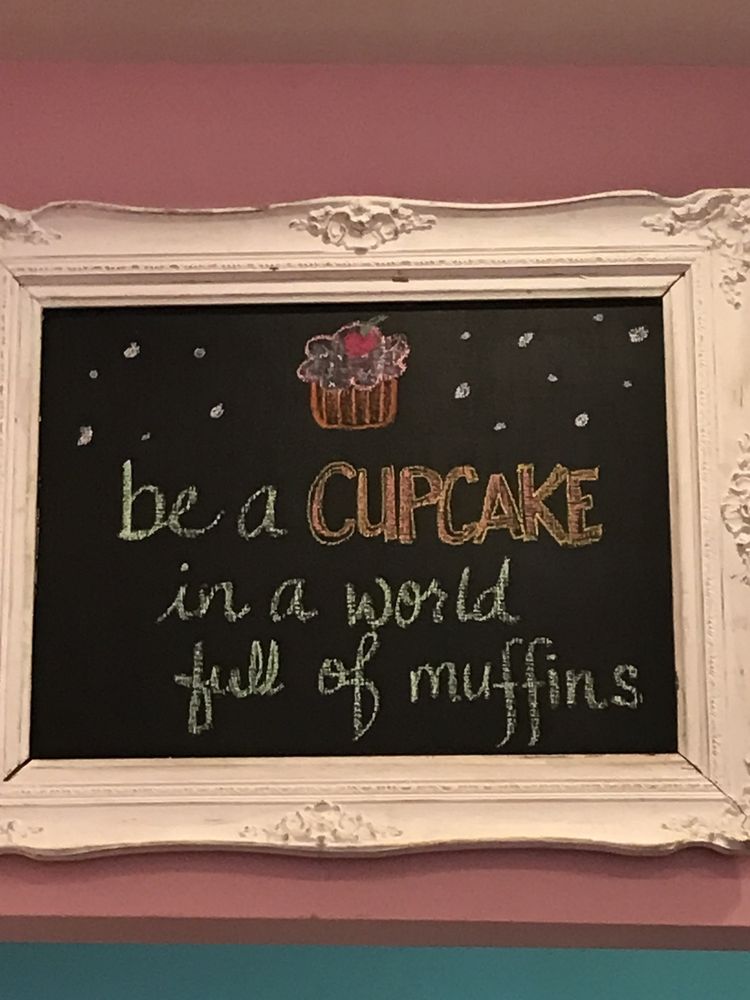 be a CUPCAKE
in a world
full of muffins